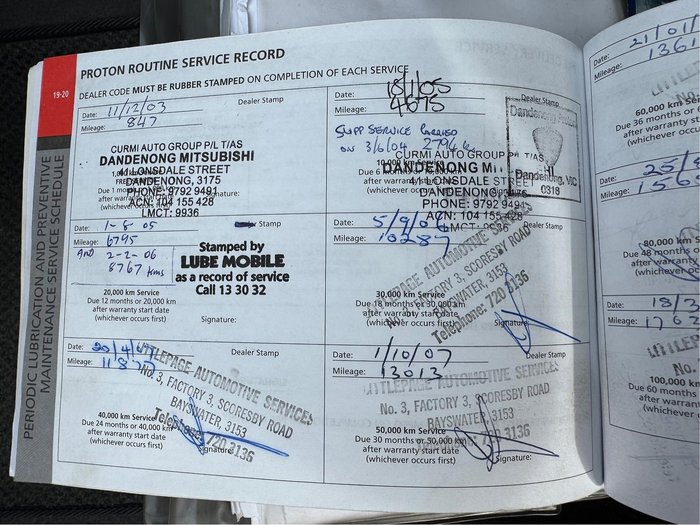 PROTON ROUTINE SERVICE RECORD
DEALER CODE MUST BE RUBBER STAMPED ON COMPLETION OF EACH SERVICE
19-20
PERIODIC LUBRICATION AND PREVENTIVE
MAINTENANCE SERVICE SCHEDULE
Date: 11/12/03
Dealer Stamp
Mileage: 847
CURMI AUTO GROUP P/L T/AS
DANDENONG MITSUBISHI
41 LONSDALE STREET
DANDENONG, 3175
PHONE: 9792 9491
ACN: 104 155 428
LMCT: 9936
Date: 18/1/05
Dealer Stamp
Mileage: 4675
SUPP SERVICE
ON 3/6/04 2794
CURMI AUTO GROUP P/L T/AS
DANDENONG MI
41 LONSDALE STREET
DANDENONG
PHONE: 9792 9491
ACN: 104 155 428
LMCT
Dandenong
Dandenong, VIC
0319
Date: 1-8-05
Mileage: 6795
AND 2-2-06
8767 kms
Stamped by
LUBE MOBILE
as a record of service
Call 13 30 32
20,000 km Service
Due 12 months or 20,000 km
after warranty start
(whichever occurs first)
Signature:
Date: 5/9/06
Mileage: 10287
LITTLEPAGE AUTOMOTIVE SERVICES
No. 3, FACTORY 3, SCORESBY ROAD
BAYSWATER, 3153
Telephone: 720 3136
30,000 km Service
Due 18 months or 30,000 km
after warranty start
(whichever occurs first)
Signature:
Date: 20/4/07
Dealer Stamp
Mileage: 11877
LITTLEPAGE AUTOMOTIVE SERVICES
No. 3, FACTORY 3, SCORESBY ROAD
BAYSWATER, 3153
Telephone: 720 3136
40,000 km Service
Due 24 months or 40,000 km
after warranty start date
(whichever occurs first)
Date: 1/10/07
Dealer Stamp
Mileage: 13013
LITTLEPAGE AUTOMOTIVE SERVICES
No. 3, FACTORY 3, SCORESBY ROAD
BAYSWATER, 3153
Telephone: 720 3136
50,000 km Service
Due 30 months or 50,000 km
after warranty start date
(whichever occurs first)
Signature:
Date: 21/01/
Mileage: 1361
60,000 km
Due 36 months or 6
after warranty sta
(whichever occurs
Date: 25/
Mileage:
80,000 km
Due 48 months or
after warranty
(whichever occu
Date: 18/2
Mileage: 1762
LITTLEP
No.
100,000 k
Due 60 months
after warranty
(whichever